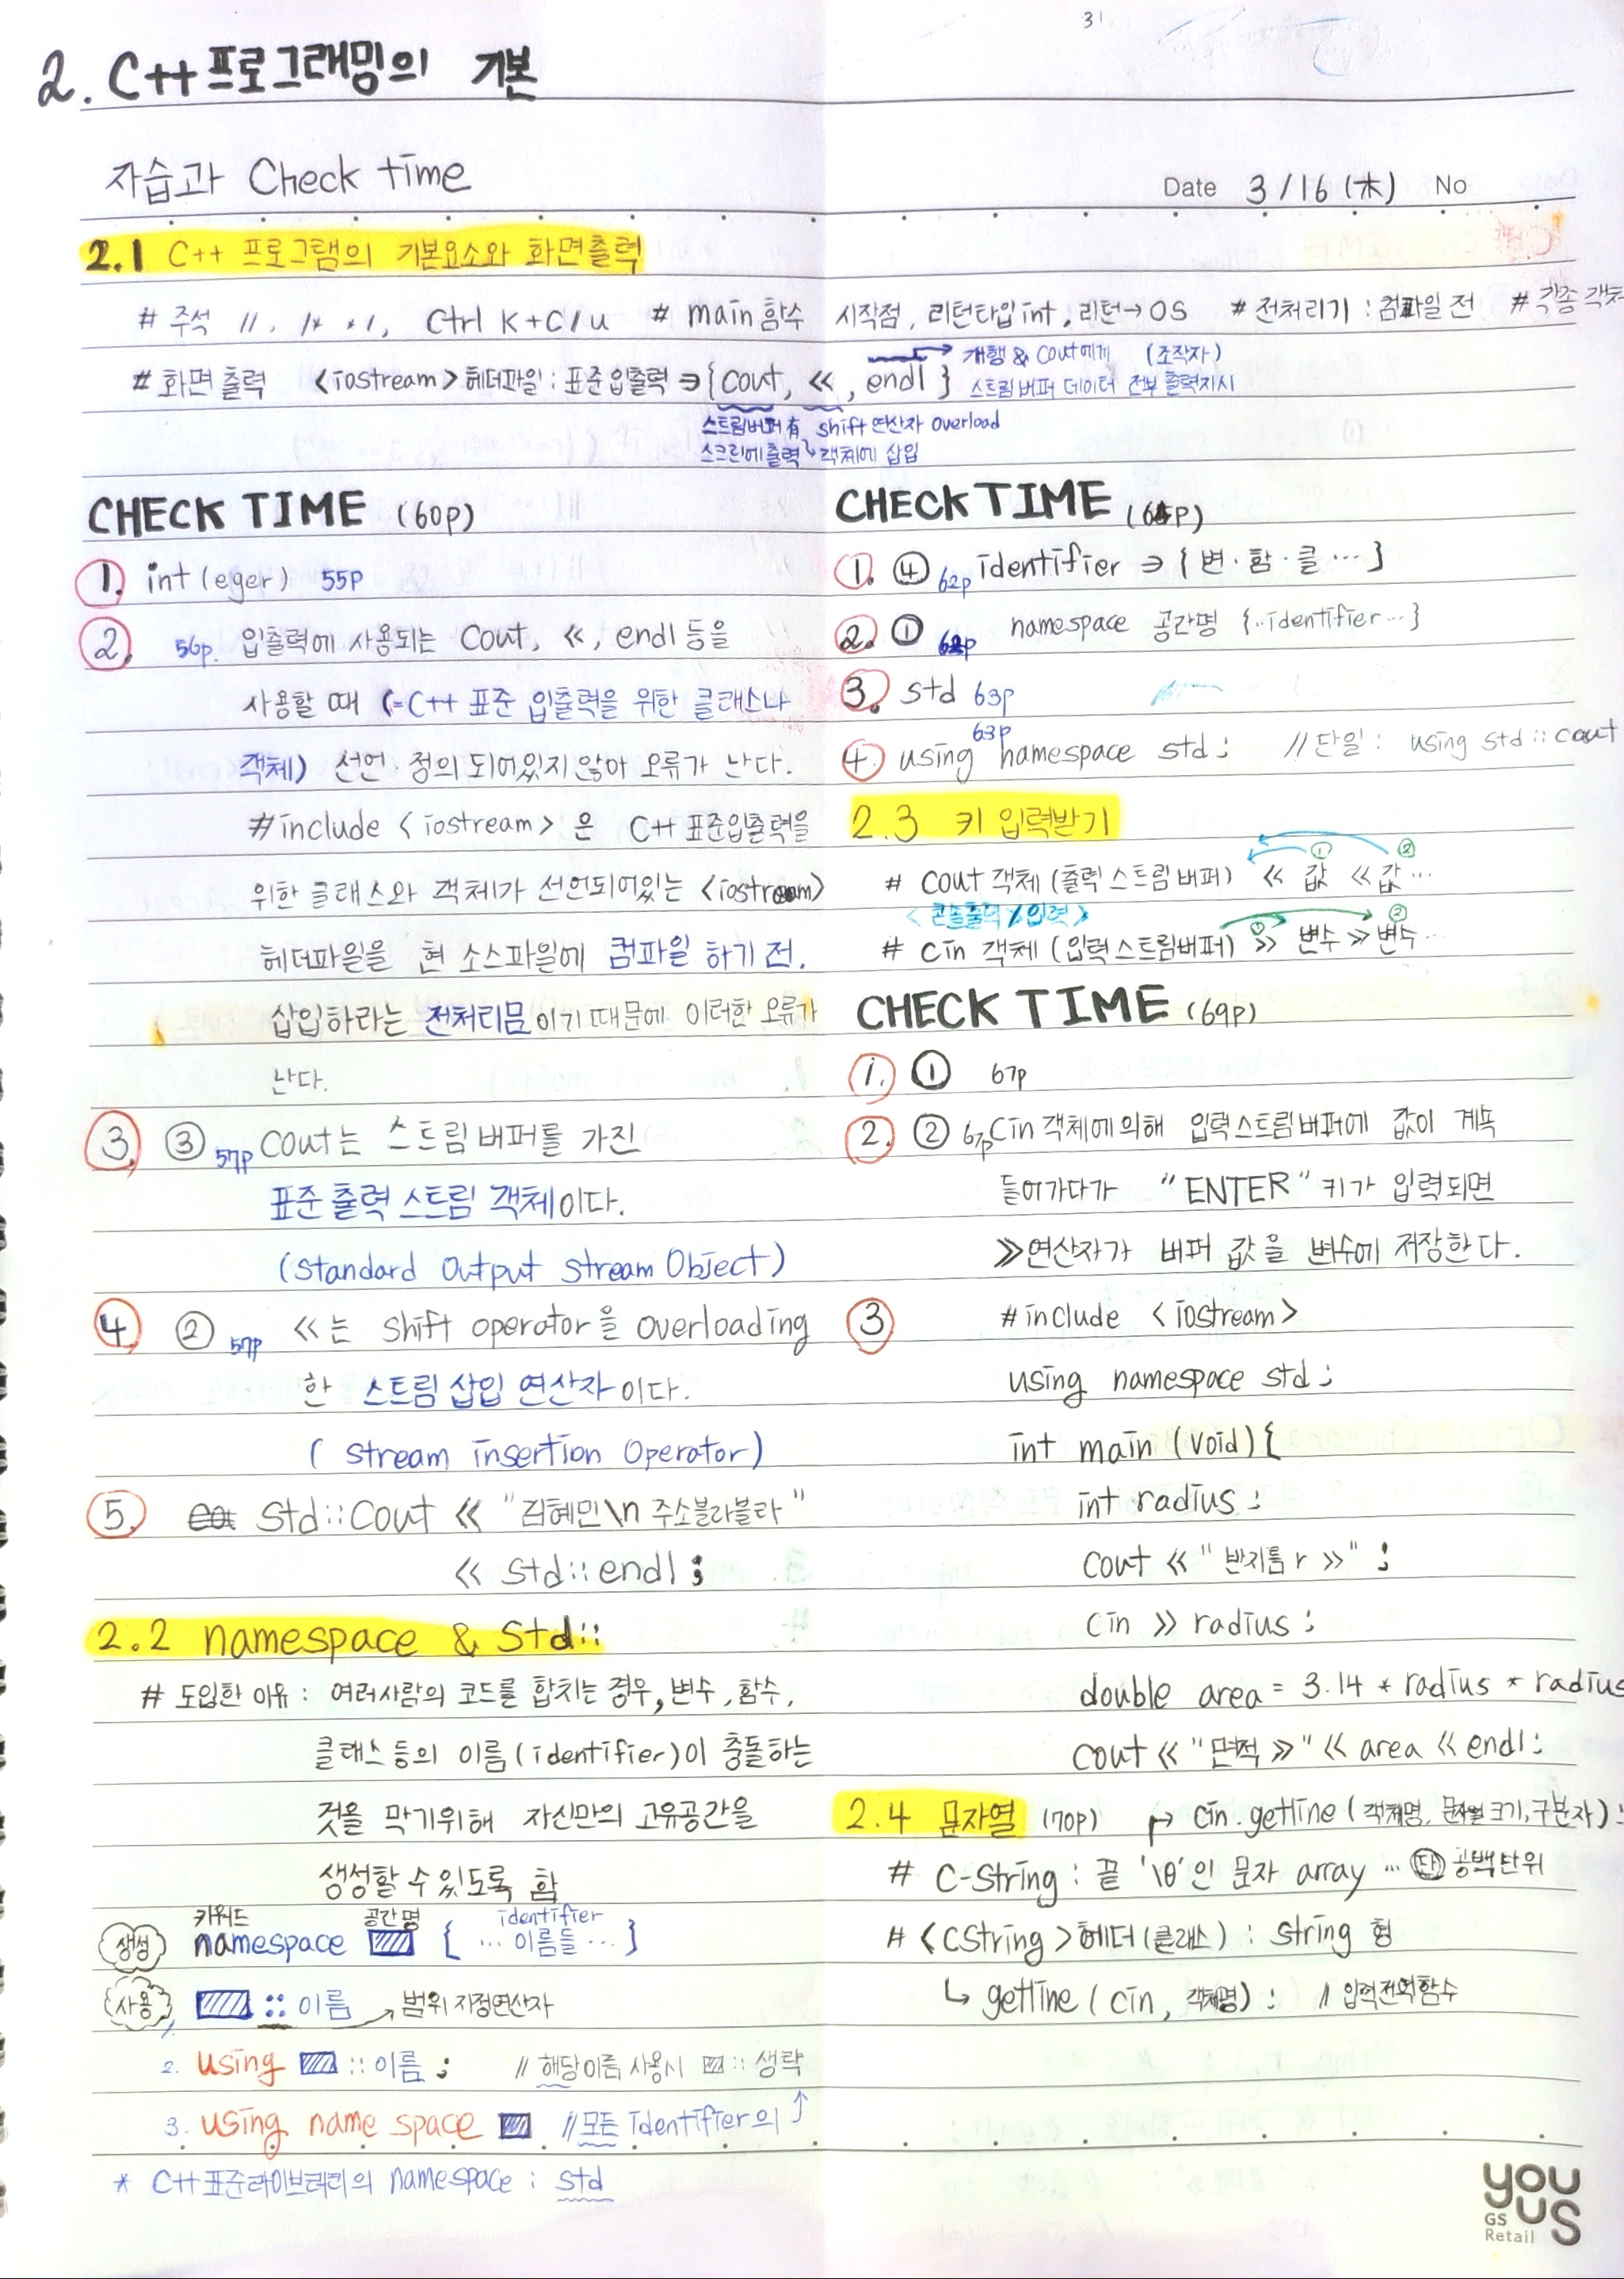 31
2. C++ 프로그래밍의 기본
자습과 Check time
Date 3/16 (木) No
2.1 C++ 프로그램의 기본요소와 화면출력
# 주석 //, /* */, Ctrl K+C/u # main 함수 시작점, 리턴타입 int, 리턴→OS # 전처리기 : 컴파일 전 # 각종 객체
# 화면 출력 <iostream> 헤더파일 : 표준입출력 ∋ { cout, <<, endl }
개행 & cout에게 (조작자)
스트림버퍼 데이터 전부 출력지시
스트림버퍼 有 shift 연산자 overload
스크린에 출력 ↳ 객체에 삽입
CHECK TIME (60p)
1. int(eger) 55p
2. 56p. 입출력에 사용되는 cout, <<, endl 등을
사용할 때 (=C++ 표준 입출력을 위한 클래스나
객체) 선언·정의 되어있지 않아 오류가 난다.
#include <iostream> 은 C++ 표준입출력을
위한 클래스와 객체가 선언되어있는 <iostream>
헤더파일을 현 소스파일에 컴파일 하기 전,
삽입하라는 전처리문이기 때문에 이러한 오류가
난다.
3. ③ 57p cout는 스트림 버퍼를 가진
표준 출력 스트림 객체이다.
(Standard Output Stream Object)
4. ② 57p <<는 shift operator을 overloading
한 스트림 삽입 연산자이다.
( Stream insertion Operator)
5. std::cout << "김혜민\n 주소블라블라"
<< std::endl ;
2.2 namespace & std::
# 도입한 이유 : 여러사람의 코드를 합치는 경우, 변수, 함수,
클래스 등의 이름(identifier)이 충돌하는
것을 막기위해 자신만의 고유공간을
생성할 수 있도록 함
키워드 공간명 identifier
생성 namespace { … 이름들 … }
사용 1. :: 이름 → 범위 지정연산자
2. using :: 이름 ; // 해당이름 사용시 :: 생략
3. using name space // 모든 identifier의 ↑
* C++ 표준라이브러리의 namespace : std
CHECK TIME (64p)
1. ④ 62p identifier ∋ { 변·함·클 … }
2. ① 62p namespace 공간명 {‥identifier…}
3. std 63p
63p
4. using namespace std ; // 단일 : using std::cout
2.3 키 입력받기
① ②
# cout 객체 (출력 스트림 버퍼) << 값 << 값 …
< 콘솔출력 / 입력 > ① ②
# cin 객체 (입력스트림버퍼) >> 변수 >> 변수 …
CHECK TIME (69p)
1. ① 67p
2. ② 67p Cin 객체에 의해 입력스트림버퍼에 값이 계속
들어가다가 "ENTER" 키가 입력되면
>>연산자가 버퍼 값을 변수에 저장한다.
3 #include <iostream>
using namespace std ;
int main (void) {
int radius ;
cout << " 반지름 r >>" ;
cin >> radius ;
double area = 3.14 * radius * radius
cout << " 면적 >>" << area << endl ;
2.4 문자열 (70p) ↱ cin.getline ( 객체명, 문자열 크기, 구분자) ;
# C-String : 끝 '\0'인 문자 array … 단 공백단위
# <CString> 헤더 (클래스) : string 형
↳ getline ( cin, 객체명 ) ; // 입력전역함수
you us
GS
Retail